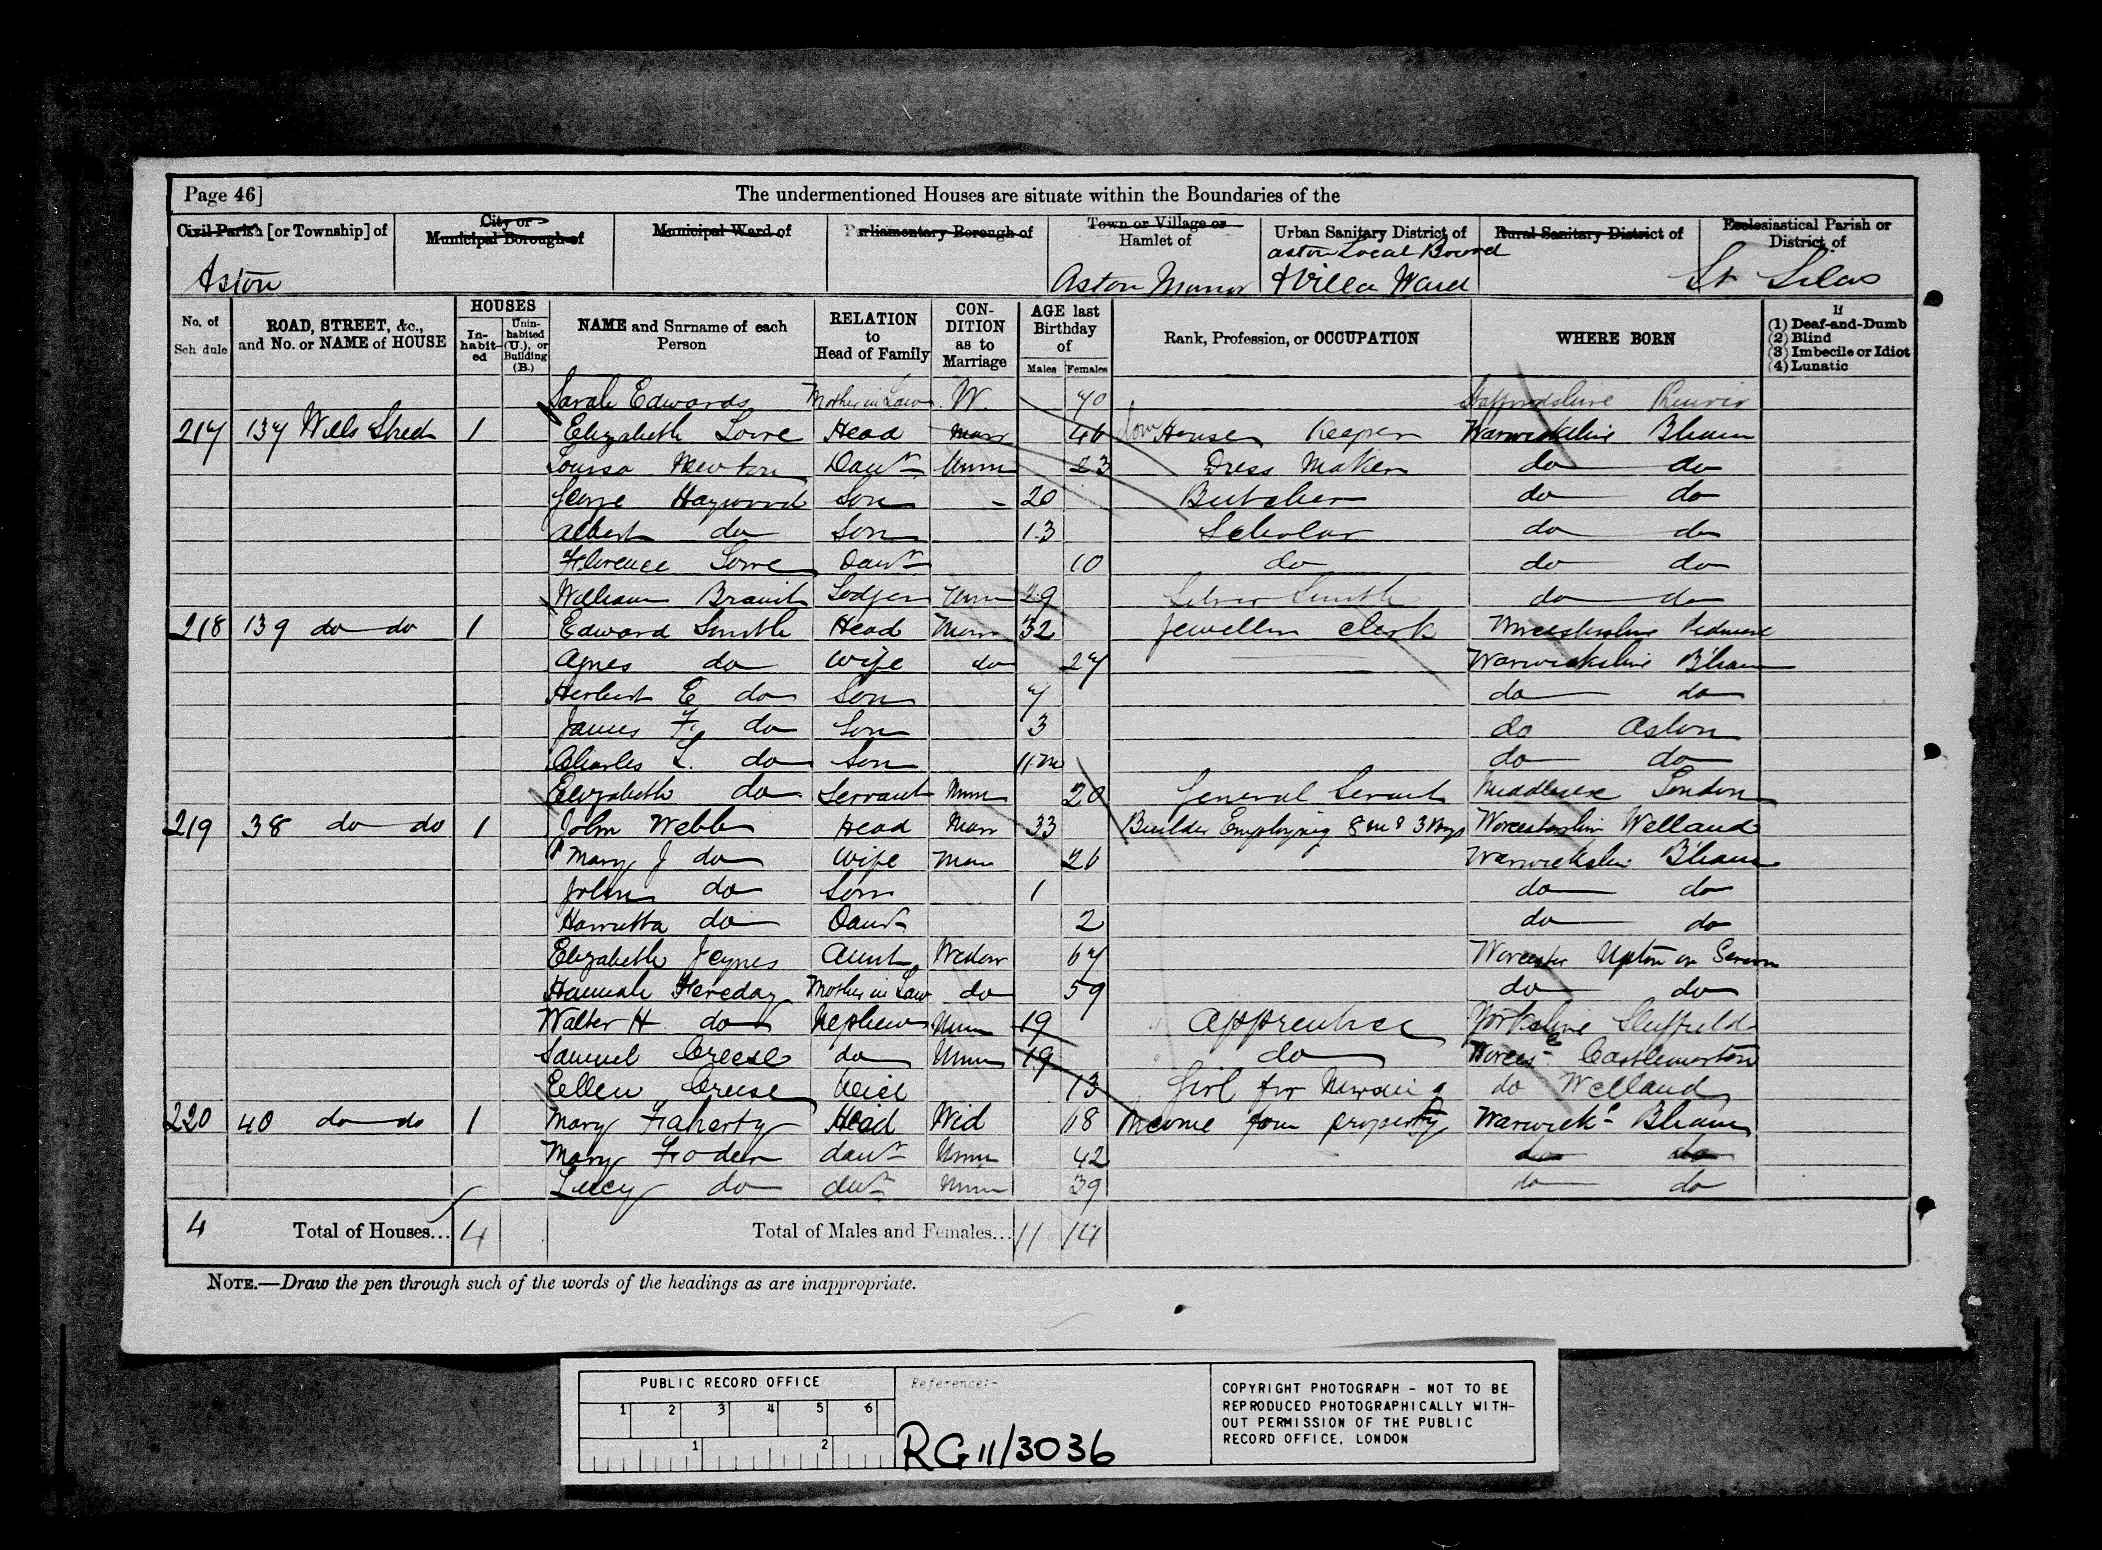 Page 46] The undermentioned Houses are situate within the Boundaries of the
Civil Parish [or Township] of City or Municipal Borough of Municipal Ward of Parliamentary Borough of Town or Village or Hamlet of Urban Sanitary District of Rural Sanitary District of Ecclesiastical Parish or District of
Aston Aston Manor Aston Local Board & Villa Ward St Silas
No. of Schedule ROAD, STREET, &c., and No. or NAME of HOUSE HOUSES Inhabited Uninhabited (U.), or Building (B.) NAME and Surname of each Person RELATION to Head of Family CONDITION as to Marriage AGE last Birthday of Males Females Rank, Profession, or OCCUPATION WHERE BORN If (1) Deaf-and-Dumb (2) Blind (3) Imbecile or Idiot (4) Lunatic
Sarah Edwards Mother in Law W. 70 Staffordshire
217 137 Wills Street 1 Elizabeth Lowe Head Marr 46 House Keeper Warwickshire Bham
Louisa Newton Daur Unm 23 Dress Maker do do
George Haywood Son - 20 Butcher do do
Albert do Son 13 Scholar do do
Florence Lowe Daur 10 do do do
William Lodger Unm 29 Silver Smith do do
218 139 do do 1 Edward Smith Head Marr 32 Jeweller Clerk Worcestershire Pedmore
Agnes do Wife do 27 Warwickshire B'ham
Herbert E do Son 7 do do
James F. do Son 3 do Aston
Charles L. do Son 11m do do
Elizabeth do Servant Unm 20 General Servant Middlesex London
219 38 do do 1 John Webb Head Marr 33 Builder Employing 8 m & 3 Boys Worcestershire Welland
Mary J do Wife Marr 26 Warwickshire B'ham
John do Son 1 do do
Harrietta do Daur 2 do do
Elizabeth Jeynes Aunt Widow 67 Worcester Upton on Severn
Hannah Hereday Mother in Law do 59 do do
Walter H do Nephew Unm 19 Apprentice Yorkshire Sheffield
Samuel Creese do Unm 19 do Worces- Castlemorton
Ellen Creese Niece 13 Girl for Nursing do Welland
220 40 do do 1 Mary Faherty Head Wid 68 Income from property Warwick- Bham
Mary Foden daur Unm 42 do do
Lucy do daur Unm 39 do do
4 Total of Houses... 4 Total of Males and Females... 11 14
NOTE.—Draw the pen through such of the words of the headings as are inappropriate.
PUBLIC RECORD OFFICE
1 2 3 4 5 6
1 2
Reference:-
RG 11/3036
COPYRIGHT PHOTOGRAPH - NOT TO BE
REPRODUCED PHOTOGRAPHICALLY WITH-
OUT PERMISSION OF THE PUBLIC
RECORD OFFICE, LONDON